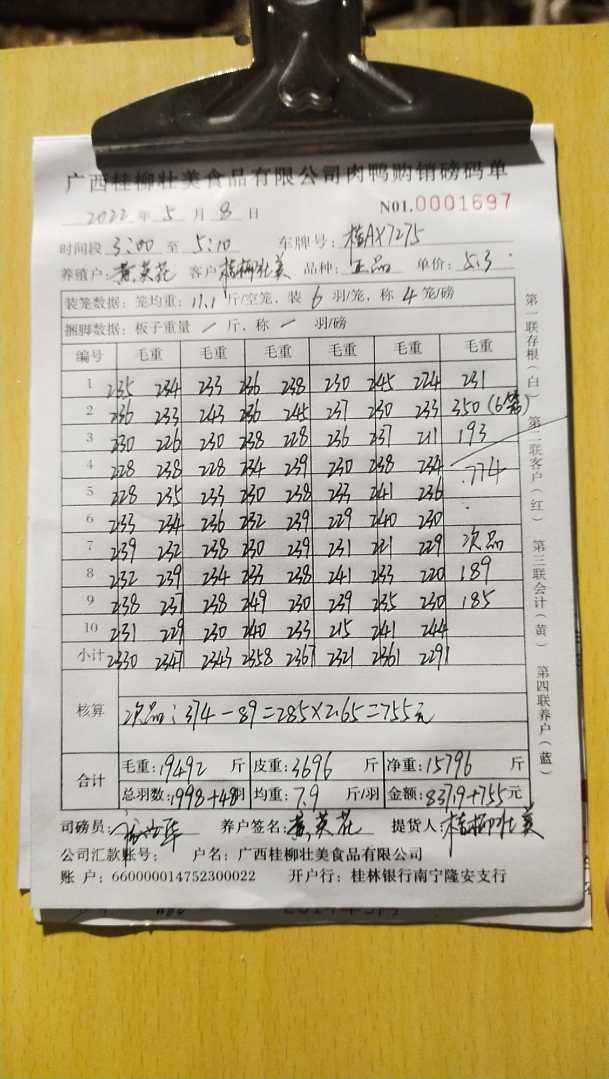 广西桂柳壮美食品有限公司肉鸭购销磅码单
2022年5月8日 NO1.0001697
时间段 3:00 至 5:10 车牌号: 桂AX7275
养殖户: 黄英花 客户 桂柳壮美 品种: 正品 单价: 5.3
装笼数据: 笼均重: 11.1 斤/空笼, 装 6 羽/笼, 称 4 笼/磅
捆脚数据: 板子重量 / 斤, 称 / 羽/磅
编号 毛重 毛重 毛重 毛重 毛重 毛重
1 235 234 233 236 238 230 245 224 231
2 236 233 243 236 245 237 230 233 350 (6笼)
3 230 226 230 238 228 236 237 211 193
4 228 238 228 234 239 230 238 234 774
5 228 235 233 230 238 233 241 236
6 233 234 236 232 239 229 240 230
7 239 232 238 230 239 231 221 229 次品
8 232 239 234 233 238 241 233 220 189
9 238 237 238 249 230 239 235 230 185
10 231 229 230 240 233 215 241 244
小计 2330 2347 2343 2358 2367 2321 2361 2291
核算 次品: 374-89=285×2.65=755元
合计 毛重: 19492 斤 皮重: 3696 斤 净重: 15796 斤
总羽数: 1998+48羽 均重: 7.9 斤/羽 金额: 83719+755元
司磅员: 养户签名: 黄英花 提货人: 桂柳壮美
公司汇款账号: 户名: 广西桂柳壮美食品有限公司
账 户: 660000014752300022 开户行: 桂林银行南宁隆安支行
第一联存根(白) 第二联客户(红) 第三联会计(黄) 第四联养户(蓝)